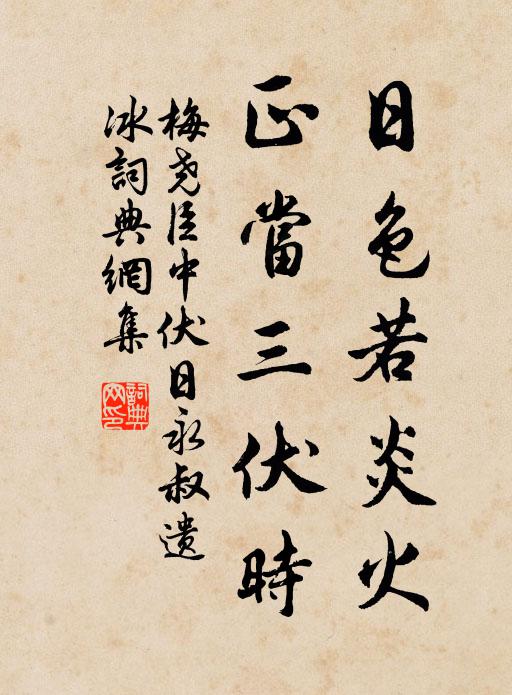 日色若炎火
正當三伏時
梅堯臣中伏日永叔遺
冰詞典網集
詞典
网印